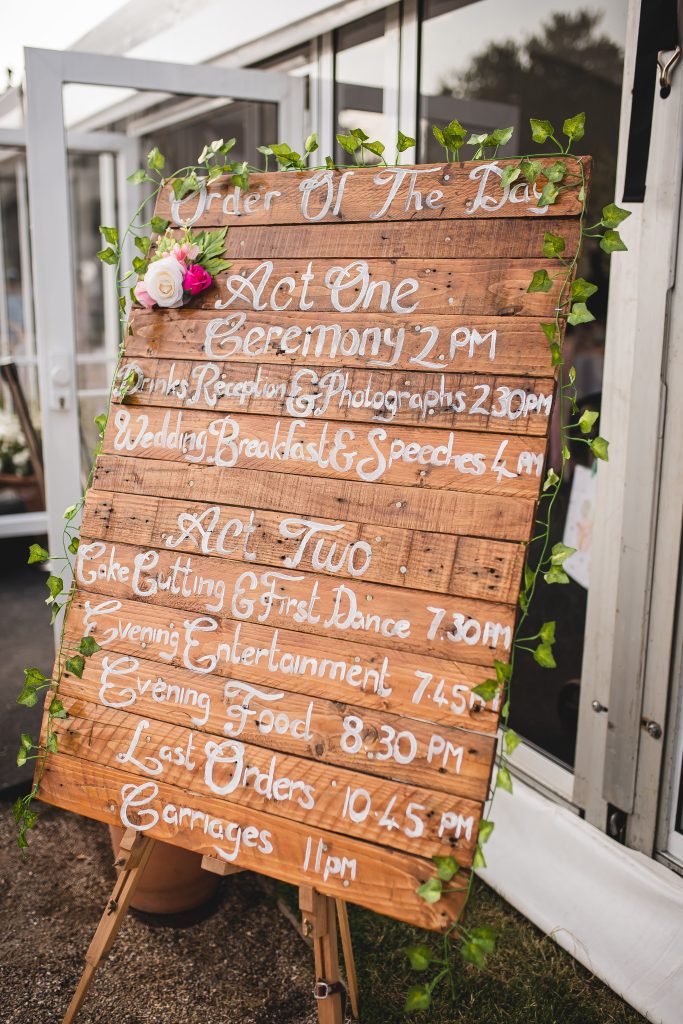 Order Of The Day
Act One
Ceremony 2 PM
Drinks Reception & Photographs 2.30PM
Wedding Breakfast & Speeches 4 PM
Act Two
Cake Cutting & First Dance 7.30PM
Evening Entertainment 7.45PM
Evening Food 8.30 PM
Last Orders 10.45 PM
Carriages 11pm